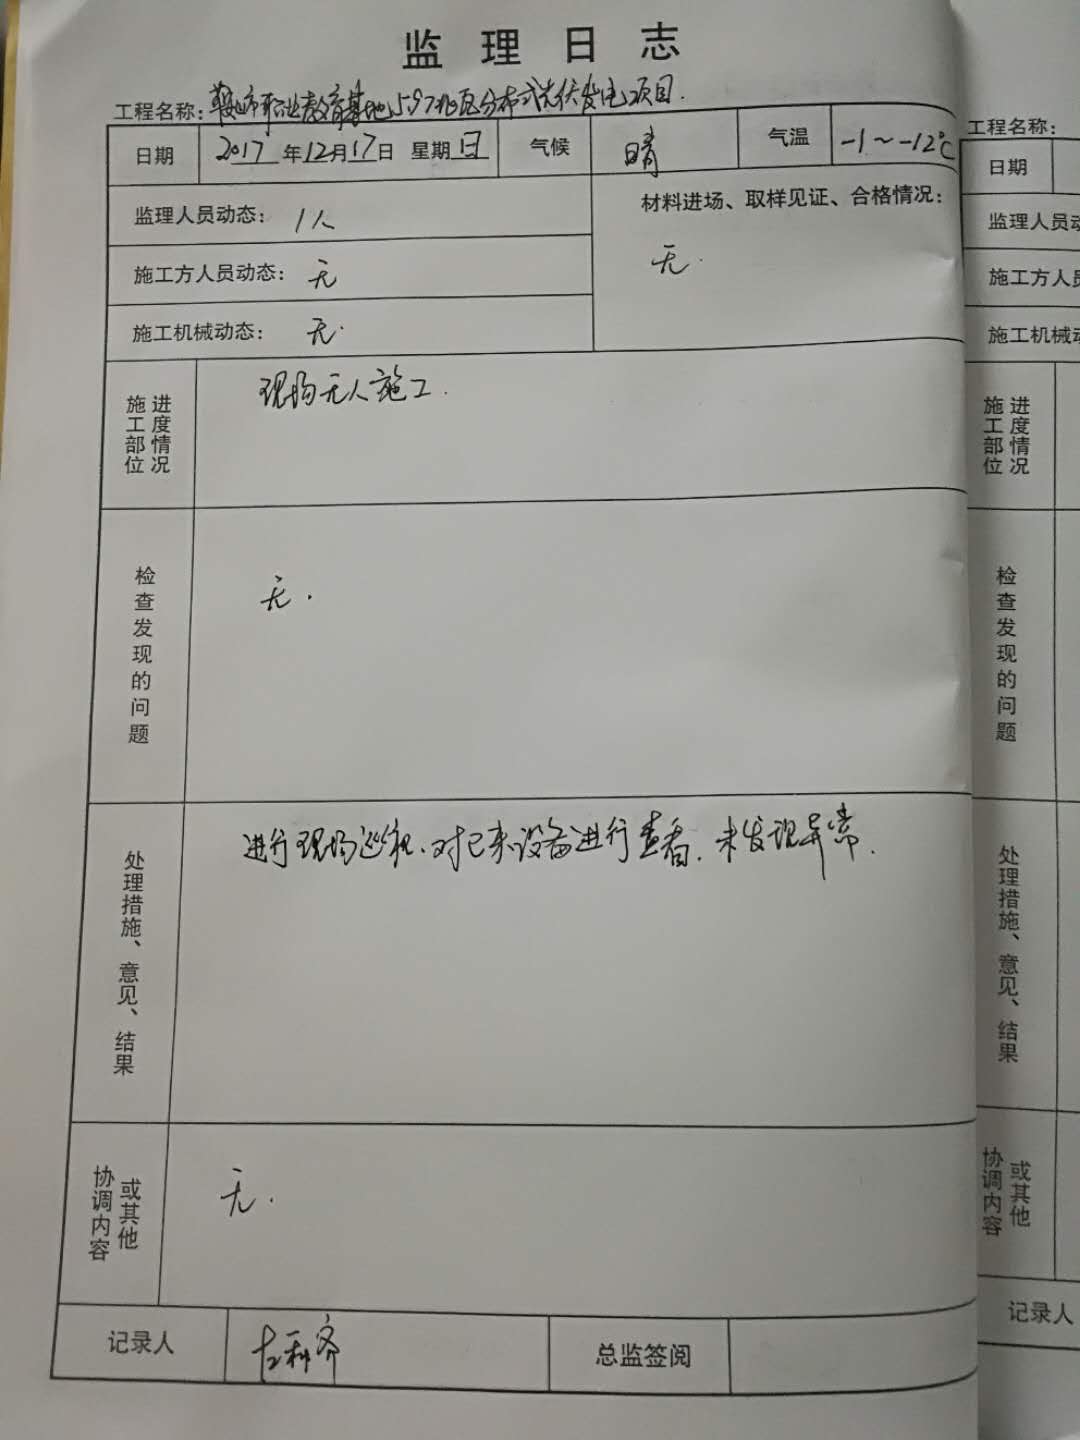 监理日志
工程名称：鞍山市职业教育基地5.97兆瓦分布式光伏发电项目.
日期 2017年12月17日 星期日 气候 晴 气温 -1～-12℃
监理人员动态： 1人
材料进场、取样见证、合格情况：
无.
施工方人员动态： 无
施工机械动态： 无.
施工部位进度情况
现场无人施工.
检查发现的问题
无.
处理措施、意见、结果
进行现场巡视.对已来设备进行查看.未发现异常.
协调内容或其他
无.
记录人
总监签阅
工程名称：
日期
监理人员动
施工方人员
施工机械动
施工部位进度情况
检查发现的问题
处理措施、意见、结果
协调内容或其他
记录人